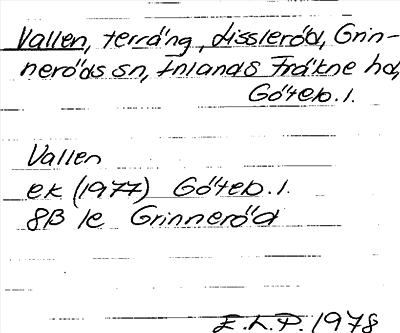 Vallen, terräng, Hissleröd, Grin-
neröds sn, Inlands Fräkne hd,
Göteb. l.
Vallen
ek (1977) Göteb. l.
8B 1e Grinneröd
E.L.P. 1978